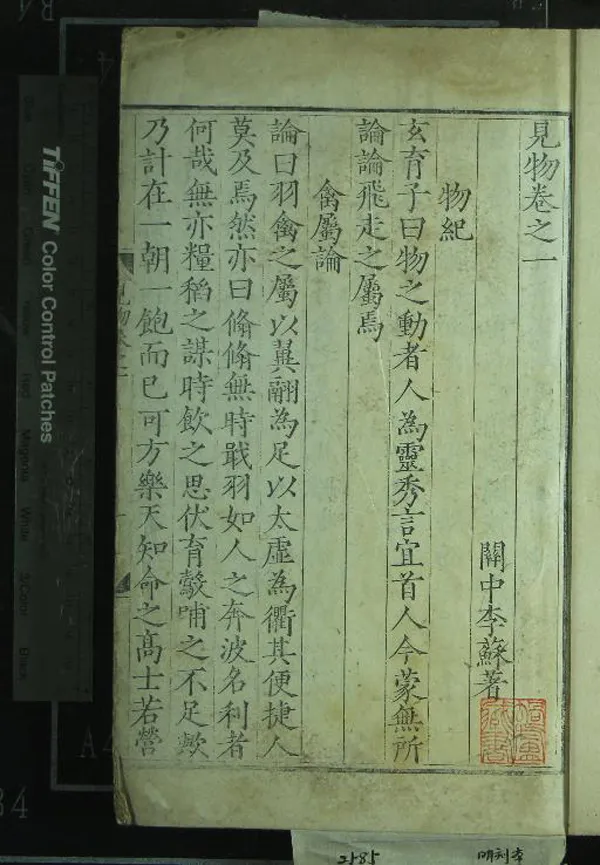 見物卷之一
關中李蘇著
物紀
玄育子曰物之動者人為靈秀言宜首人今蒙無所
論論飛走之屬焉
禽屬論
論曰羽禽之屬以翼翮為足以太虛為衢其便捷人
莫及焉然亦曰翛翛無時戢羽如人之奔波名利者
何哉無亦糧稻之謀時飲之思伏育鷇哺之不足歟
乃計在一朝一飽而已可方樂天知命之高士若營
見物卷之一
藏書
TIFFEN Color Control Patches
Magenta
White
3/Color
Black
A4
34
2585
明刻本